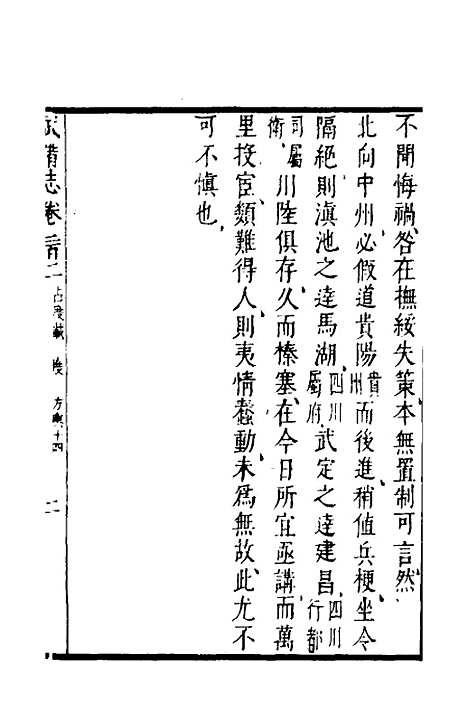 不聞悔禍、咎在撫綏失策、本無置制可言然
北向中州、必假道貴陽貴州而後進、稍値兵梗、坐令
隔絶、則滇池之達馬湖、四川屬府武定之達建昌、四川行都
司屬衛川陸俱存、久而榛塞、在今日所宜亟講、而萬
里投宦、類難得人、則夷情蠢動、未爲無故、此尤不
可不愼也、
武備志卷 二 占度載 度 方輿十四 二